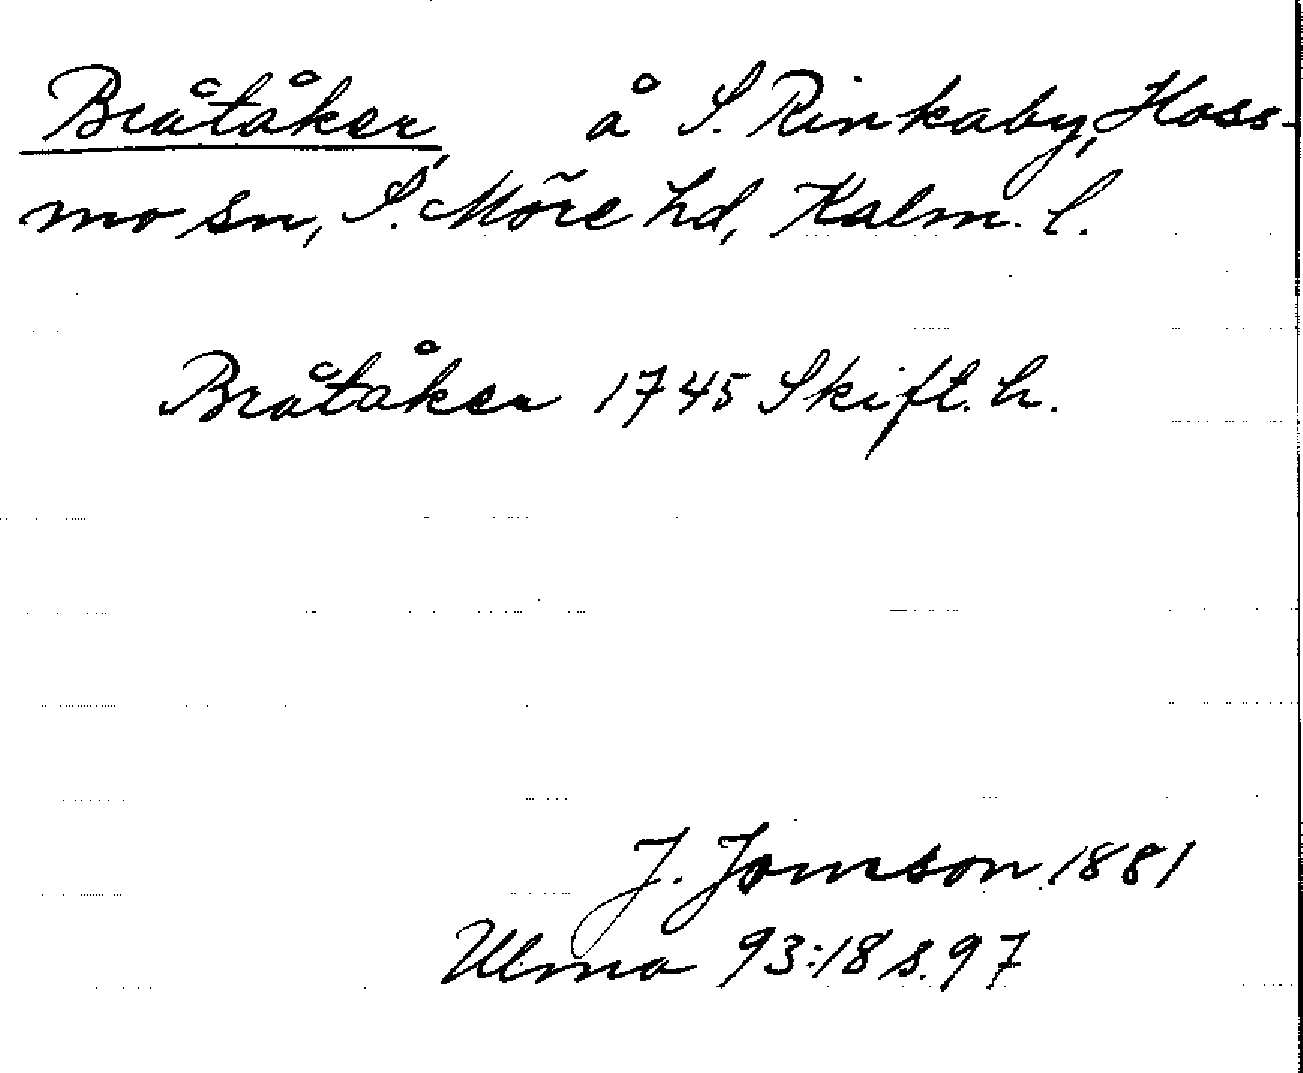 Bråtåker, å S. Rinkaby, Hoss-
mo sn, S. Möre hd, Kalm. l.
Bråtåker 1745 Skift. h.
J. Jonson 1881
Ulma 93:18 s. 97